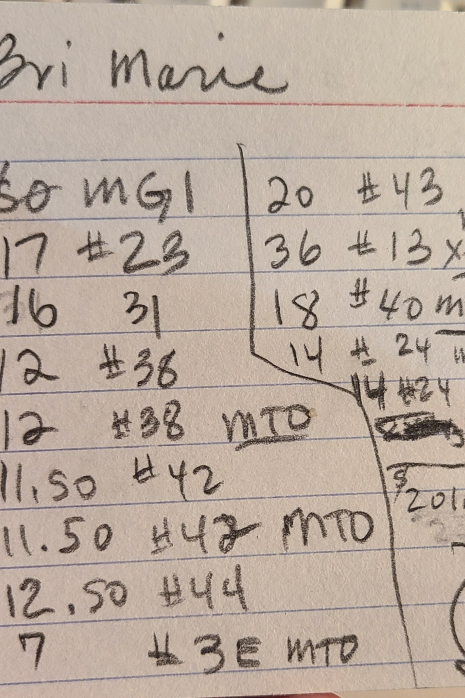 Bri Marie
50 MG1
17 #23
16 31
12 #38
12 #38 MTO
11.50 #42
11.50 #42 MTO
12.50 #44
7 #3E MTO
20 #43
36 #13 x
18 #40 m
14 # 24
14 #24
$201